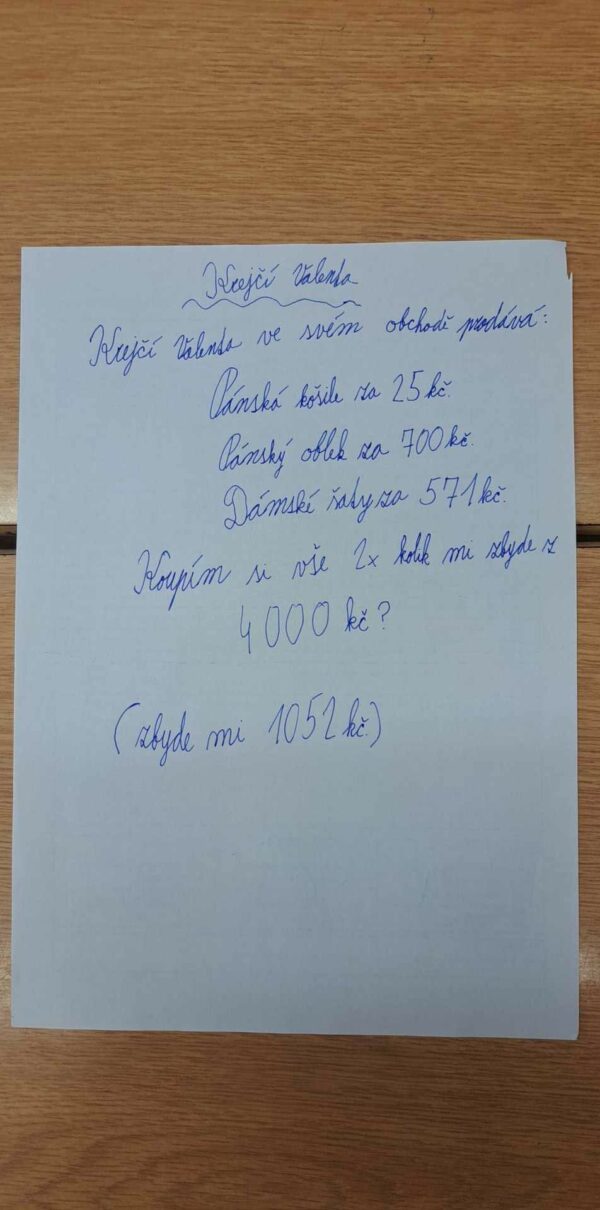 Krejčí Valenta
Krejčí Valenta ve svém obchodě prodává:
Pánská košile za 25 kč.
Pánský oblek za 700 kč.
Dámské šaty za 571 kč.
Koupím si vše 2x kolik mi zbyde z
4000 kč?
(zbyde mi 1052 kč.)